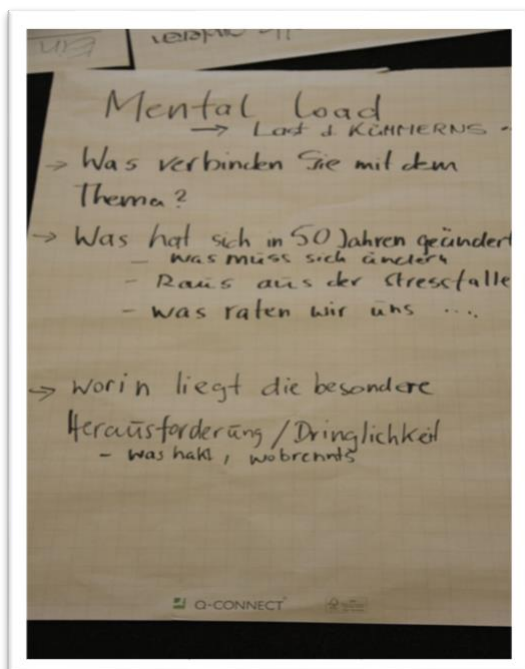 Mental Load
→ Last d. KÜMMERNS
→ Was verbinden Sie mit dem
Thema?
→ Was hat sich in 50 Jahren geändert
- was muss sich ändern
- Raus aus der Stressfalle
- was raten wir uns ....
→ worin liegt die besondere
Herausforderung / Dringlichkeit
- was hakt, wo brennts
Q-CONNECT